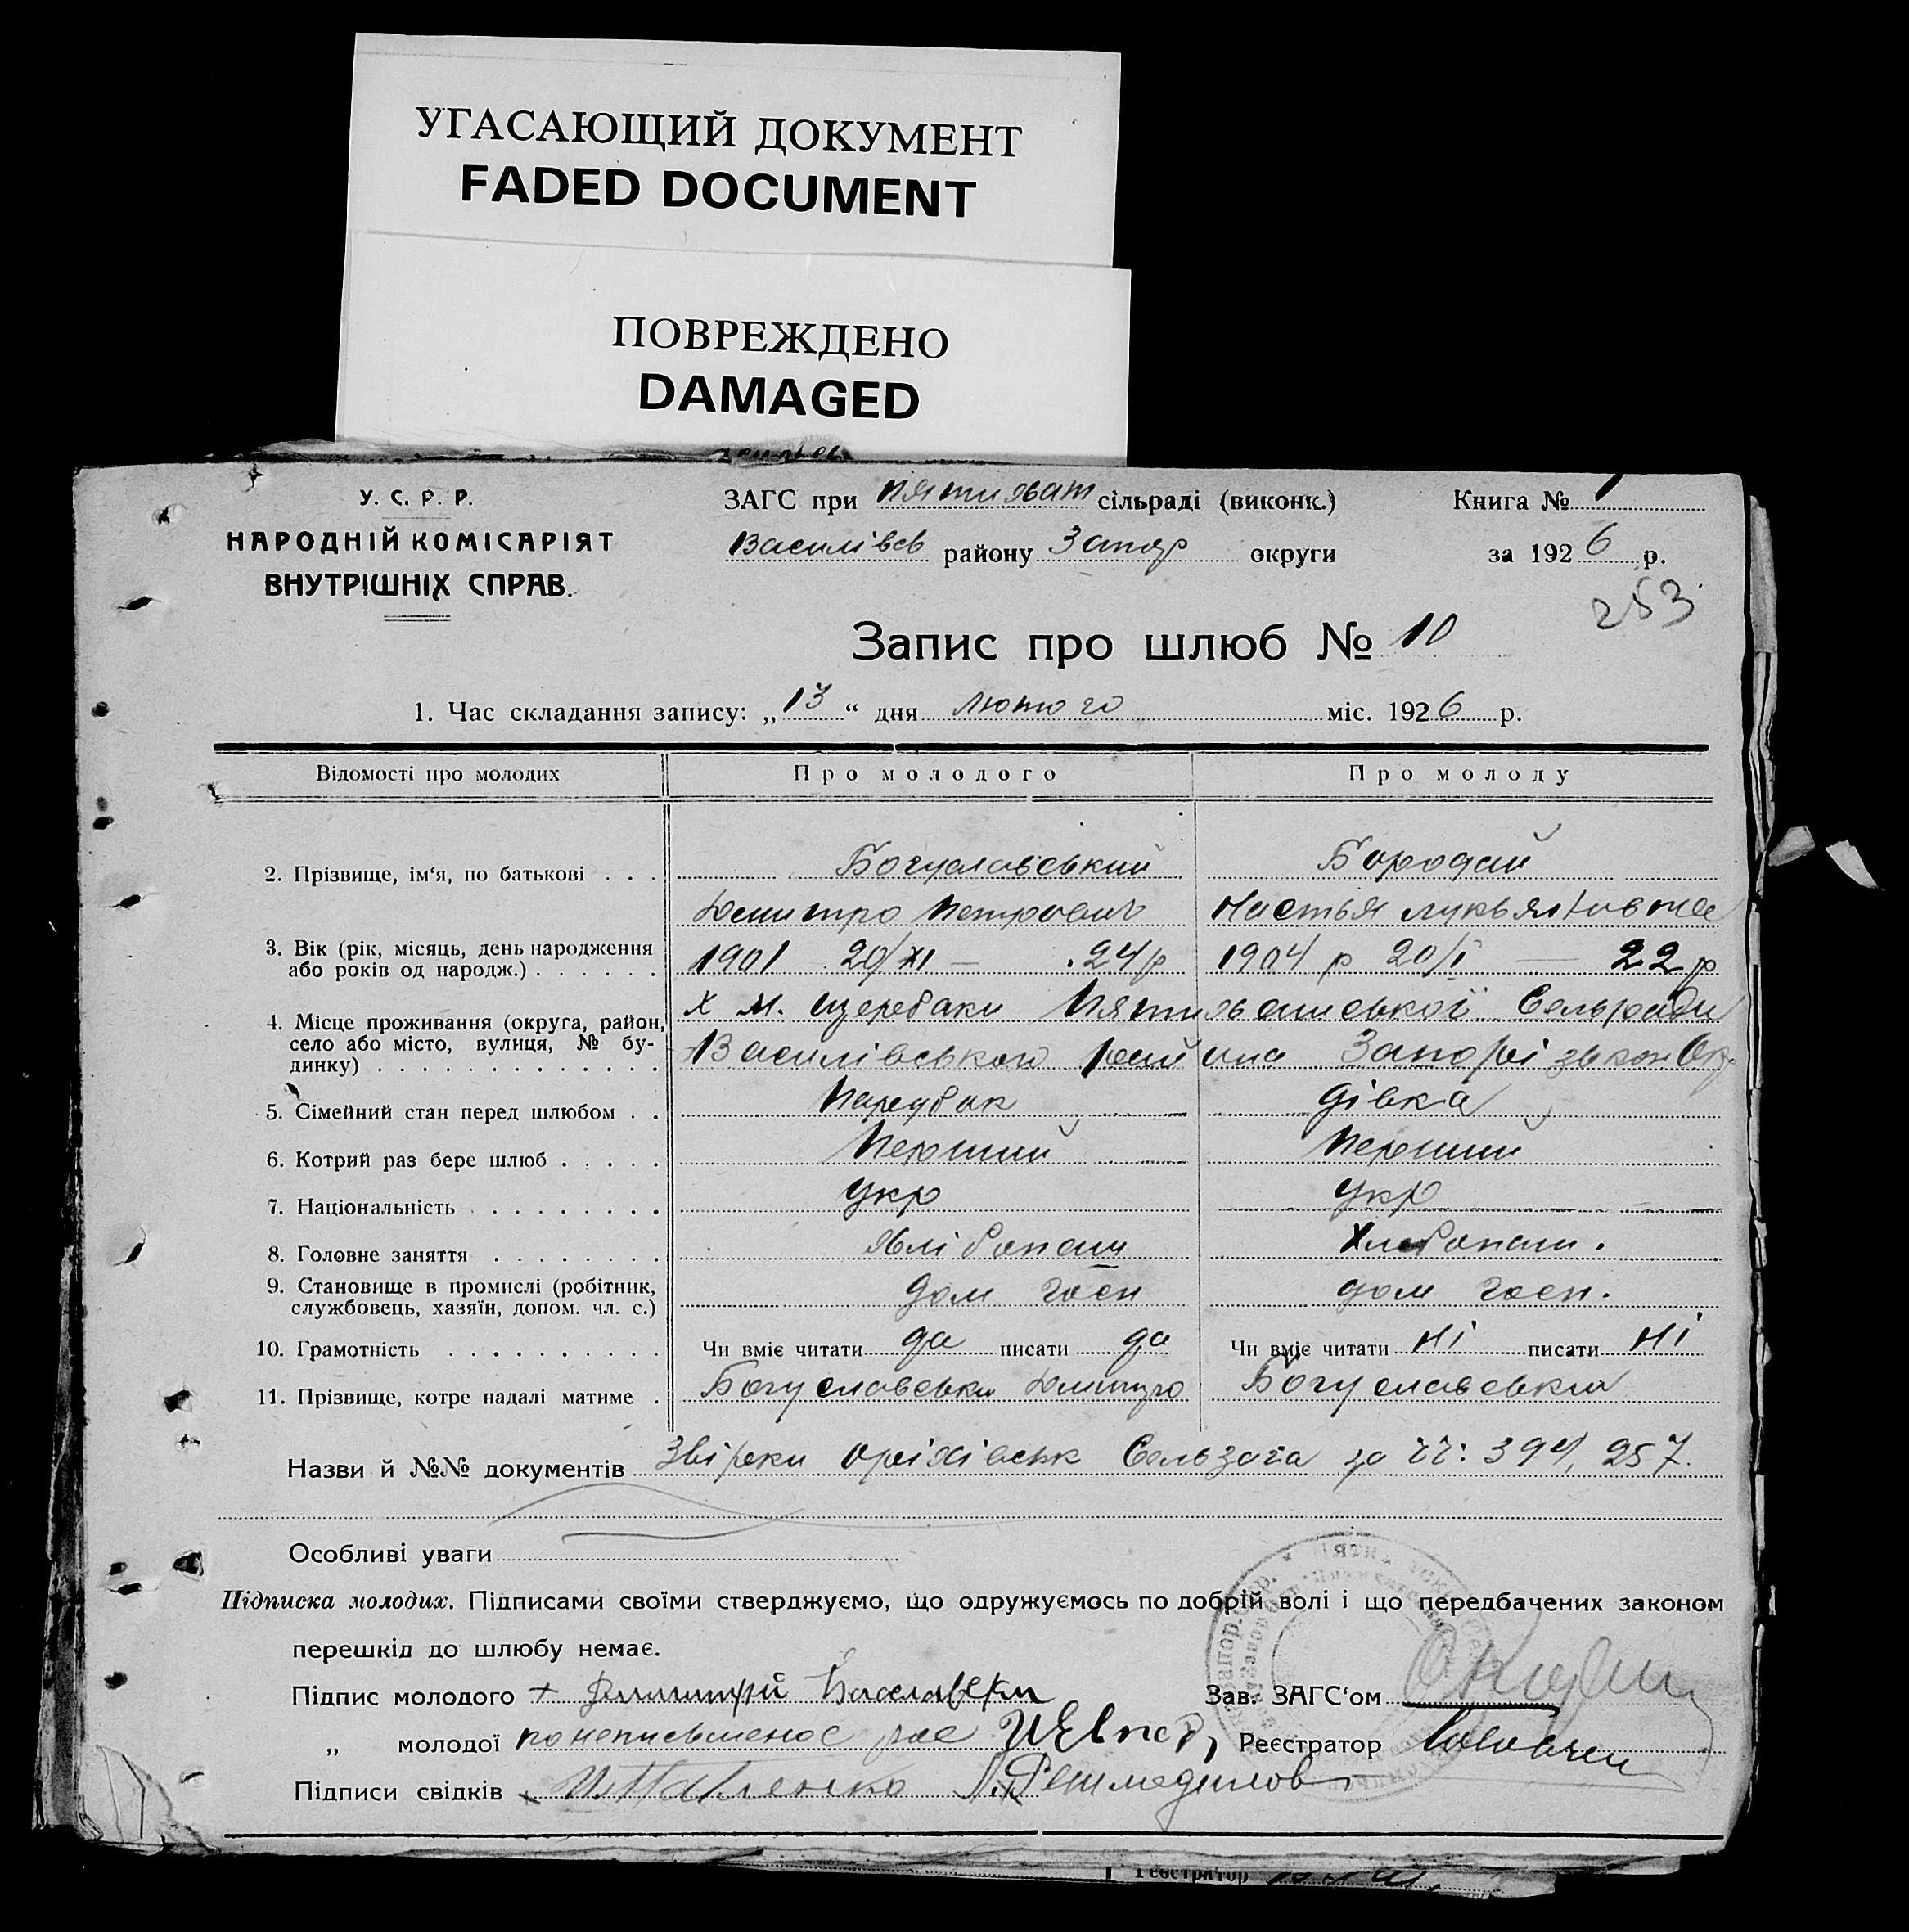 УГАСАЮЩИЙ ДОКУМЕНТ
FADED DOCUMENT
ПОВРЕЖДЕНО
DAMAGED
У. С. Р. Р.
НАРОДНІЙ КОМІСАРІЯТ
ВНУТРІШНІХ СПРАВ.
ЗАГС при пятихат сільраді (виконк.) Книга № 1
Василівсь району Запор округи за 1926 р.
253
Запис про шлюб № 10
1. Час складання запису: „13“ дня лютого міс. 1926 р.
Відомості про молодих Про молодого Про молоду
2. Прізвище, ім‘я, по батькові . . . Богуславський Бородай
Дмитро Петрович Настья лукьяновна
3. Вік (рік, місяць, день народження або років од народж.) . . . . . . 1901 20/XI — 24р 1904 р 20/I — 22 р
4. Місце проживання (округа, район, село або місто, вулиця, № будинку) . . . х м. щербаки Пятихатської Сельради
Василівського района Запорізької Окр.
5. Сімейний стан перед шлюбом . . Парубок дівка
6. Котрий раз бере шлюб . . . . . Перший Перший
7. Національність . . . . . . . . . укр укр
8. Головне заняття . . . . . . . . хлібопаш Хлебопаш.
9. Становище в промислі (робітник, службовець, хазяїн, допом. чл. с.) дом госп дом госп.
10. Грамотність . . . . . . . . . . Чи вміє читати да писати да Чи вміє читати ні писати ні
11. Прізвище, котре надалі матиме . Богуславськи Дмитро Богуславськи
Назви й №№ документів Звірки Оріхівськ Сельзагса за 394, 257.
Особливі уваги
Підписка молодих. Підписами своїми стверджуємо, що одружуємось по добрій волі і що передбачених законом
перешкід до шлюбу немає.
Підпис молодого + Димитрий Зав. ЗАГС‘ом
„ молодої Реєстратор
Підписи свідків Павленко
Реєстратор